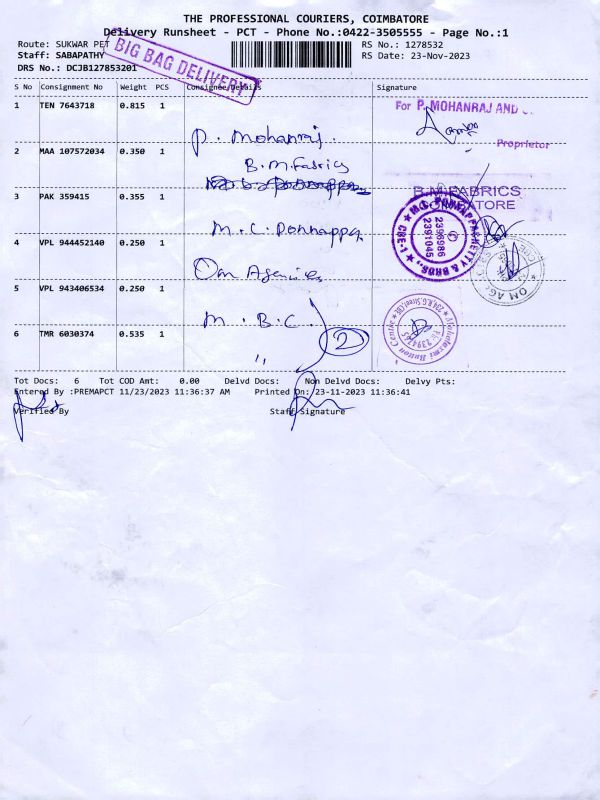 THE PROFESSIONAL COURIERS, COIMBATORE
Delivery Runsheet - PCT - Phone No.:0422-3505555 - Page No.:1
Route: SUKWAR PET
RS No.: 1278532
Staff: SABAPATHY
RS Date: 23-Nov-2023
DRS No.: DCJB127853201
BIG BAG DELIVERY
S No Consignment No Weight PCS Consignee/Details Signature
1 TEN 7643718 0.815 1
For P. MOHANRAJ AND
P. Mohanraj.
Proprietor
2 MAA 107572034 0.350 1
B.M.Fabrics
B.M.FABRICS
COIMBATORE
3 PAK 359415 0.355 1
M.C. Ponnappa
2396986
2391045
4 VPL 944452140 0.250 1
Om Agencies
5 VPL 943406534 0.250 1
M.B.C.
2
6 TMR 6030374 0.535 1
"
Tot Docs: 6 Tot COD Amt: 0.00 Delvd Docs: Non Delvd Docs: Delvy Pts:
Entered By :PREMAPCT 11/23/2023 11:36:37 AM Printed On: 23-11-2023 11:36:41
Verified By Staff Signature